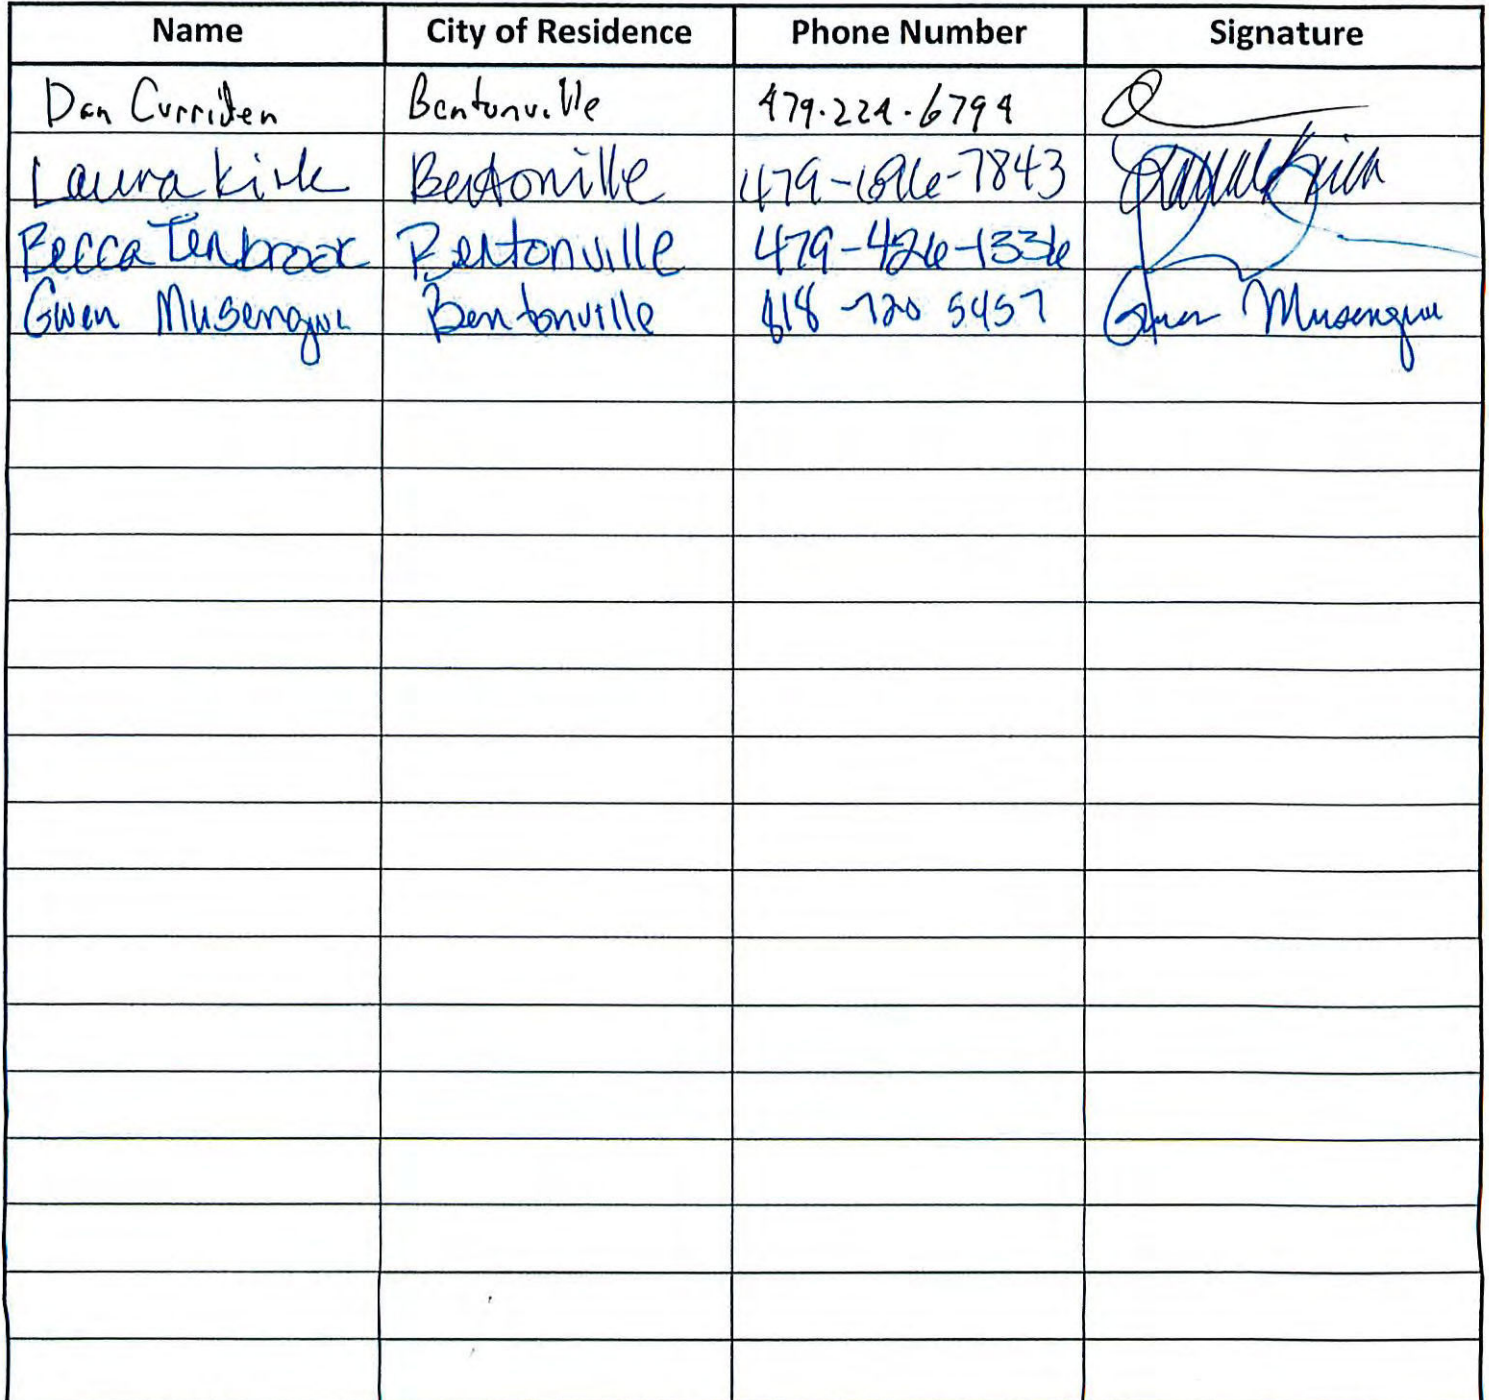 Name City of Residence Phone Number Signature
Dan Curriden Bentonville 479.224.6794
Laura Kirk Bentonville 479-696-7843 Laura Kirk
Becca Tenbrook Bentonville 479-426-1336
Gwen Musengwa Bentonville 818-720 5457 Gwen Musengwa